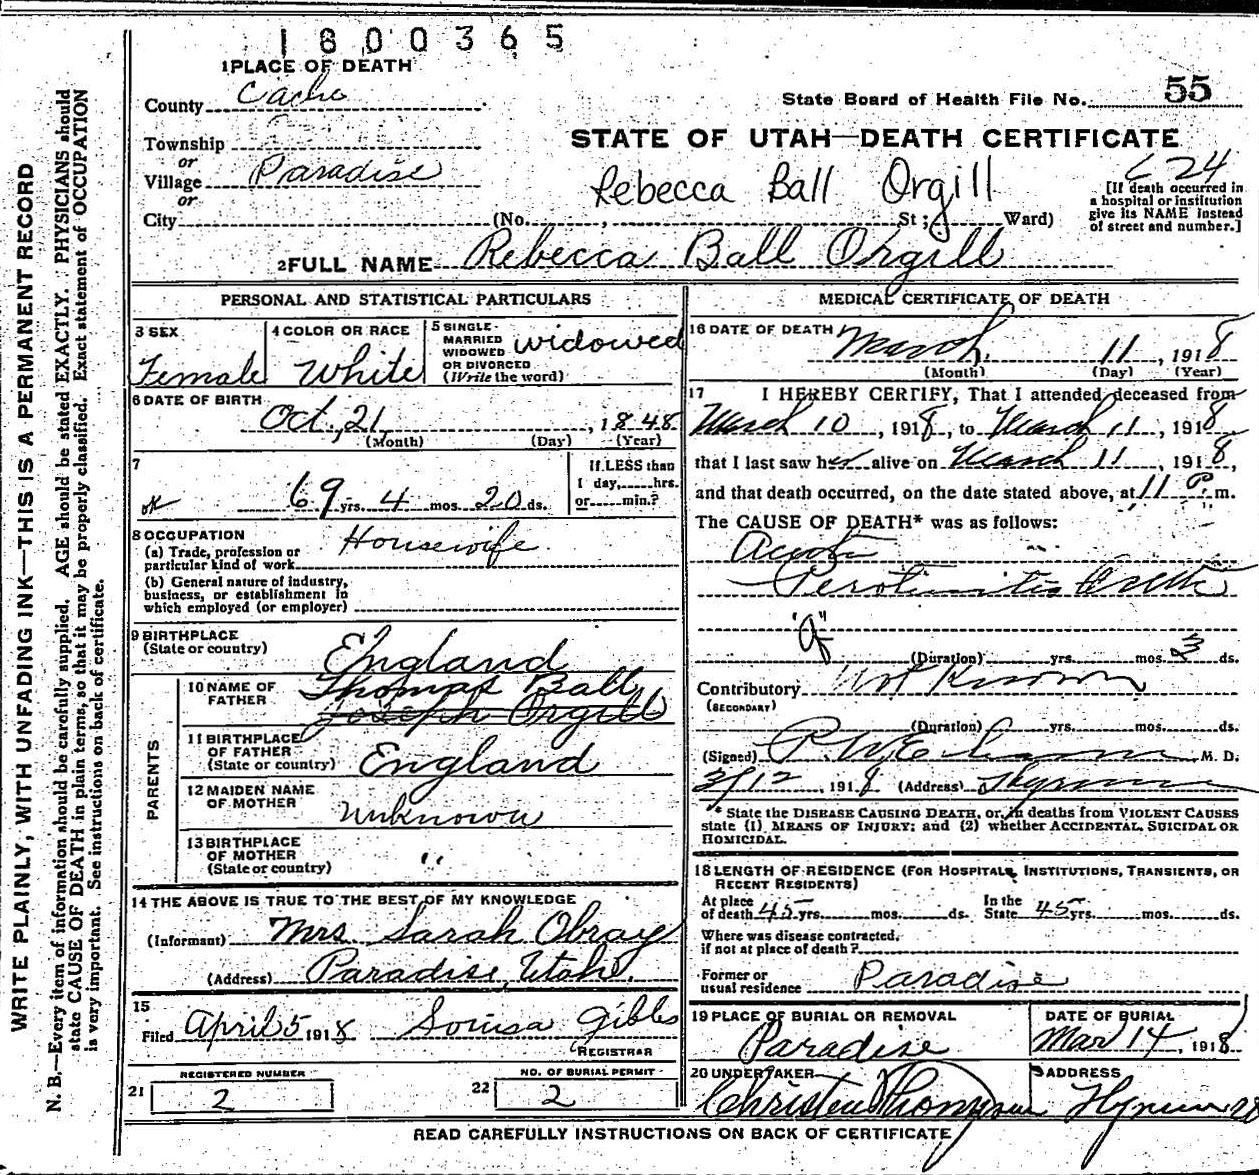 1800365
1 PLACE OF DEATH
County Cache
State Board of Health File No. 55
Township
STATE OF UTAH—DEATH CERTIFICATE
or
Village Paradise
Rebecca Ball Orgill
24
or
City (No. , St; Ward)
[If death occurred in
a hospital or institution
give its NAME instead
of street and number.]
2 FULL NAME Rebecca Ball Orgill
PERSONAL AND STATISTICAL PARTICULARS
3 SEX
Female
4 COLOR OR RACE
White
5 SINGLE
MARRIED
WIDOWED
OR DIVORCED
(Write the word)
widowed
6 DATE OF BIRTH
Oct. 21, 1848
(Month) (Day) (Year)
7
69 yrs. 4 mos. 20 ds.
If LESS than
1 day, hrs.
or min.?
8 OCCUPATION
(a) Trade, profession or
particular kind of work Housewife
(b) General nature of industry,
business, or establishment in
which employed (or employer)
9 BIRTHPLACE
(State or country) England
PARENTS
10 NAME OF
FATHER
Thomas Ball
Joseph Orgill
11 BIRTHPLACE
OF FATHER
(State or country) England
12 MAIDEN NAME
OF MOTHER Unknown
13 BIRTHPLACE
OF MOTHER
(State or country) "
14 THE ABOVE IS TRUE TO THE BEST OF MY KNOWLEDGE
(Informant) Mrs Sarah Obray
(Address) Paradise, Utah.
15
Filed April 5 1918 Louisa Gibbs
REGISTRAR
REGISTERED NUMBER
21 2
NO. OF BURIAL PERMIT
22 2
MEDICAL CERTIFICATE OF DEATH
16 DATE OF DEATH
March 11, 1918
(Month) (Day) (Year)
17 I HEREBY CERTIFY, That I attended deceased from
March 10, 1918, to March 11, 1918
that I last saw her alive on March 11, 1918,
and that death occurred, on the date stated above, at 11 P. m.
The CAUSE OF DEATH* was as follows:
Acute
Peritonitis
(Duration) yrs. mos. 3 ds.
Contributory Not Known
(SECONDARY)
(Duration) yrs. mos. ds.
(Signed) M. D.
3/12, 1918 (Address) Hyrum
* State the DISEASE CAUSING DEATH, or, in deaths from VIOLENT CAUSES
state (1) MEANS OF INJURY; and (2) whether ACCIDENTAL, SUICIDAL OR
HOMICIDAL.
18 LENGTH OF RESIDENCE (FOR HOSPITALS, INSTITUTIONS, TRANSIENTS, OR
RECENT RESIDENTS)
At place
of death 45 yrs. mos. ds.
In the
State 45 yrs. mos. ds.
Where was disease contracted,
if not at place of death?
Former or
usual residence Paradise
19 PLACE OF BURIAL OR REMOVAL
Paradise
DATE OF BURIAL
Mar 14, 1918
20 UNDERTAKER
Christen Thompson
ADDRESS
Hyrum
READ CAREFULLY INSTRUCTIONS ON BACK OF CERTIFICATE
WRITE PLAINLY, WITH UNFADING INK—THIS IS A PERMANENT RECORD
N. B.—Every item of information should be carefully supplied. AGE should be stated EXACTLY. PHYSICIANS should
state CAUSE OF DEATH in plain terms, so that it may be properly classified. Exact statement of OCCUPATION
is very important. See instructions on back of certificate.